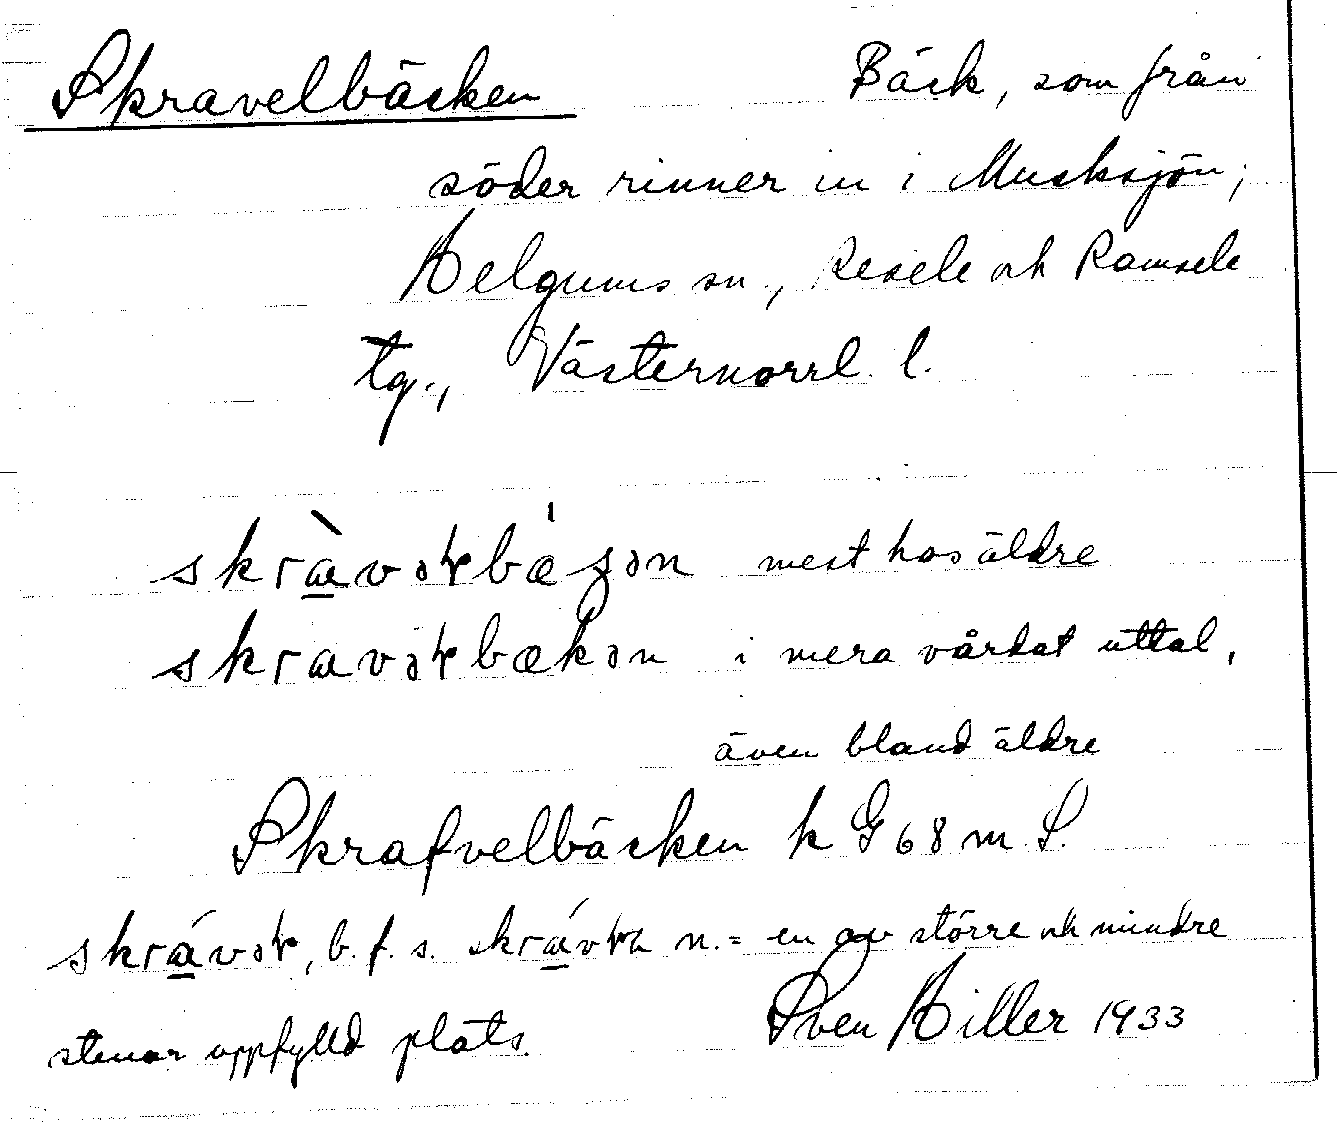 Skravelbäcken Bäck, som från
söder rinner in i Musksjön;
Helgums sn., Resele och Ramsele
tg., Västernorrl. l.
mest hos äldre
i mera vårdat uttal,
även bland äldre
Skrafvelbäcken k G 68 m S.
b. f. s. n. = en av större och mindre
stenar uppfylld plats. Sven Hiller 1933